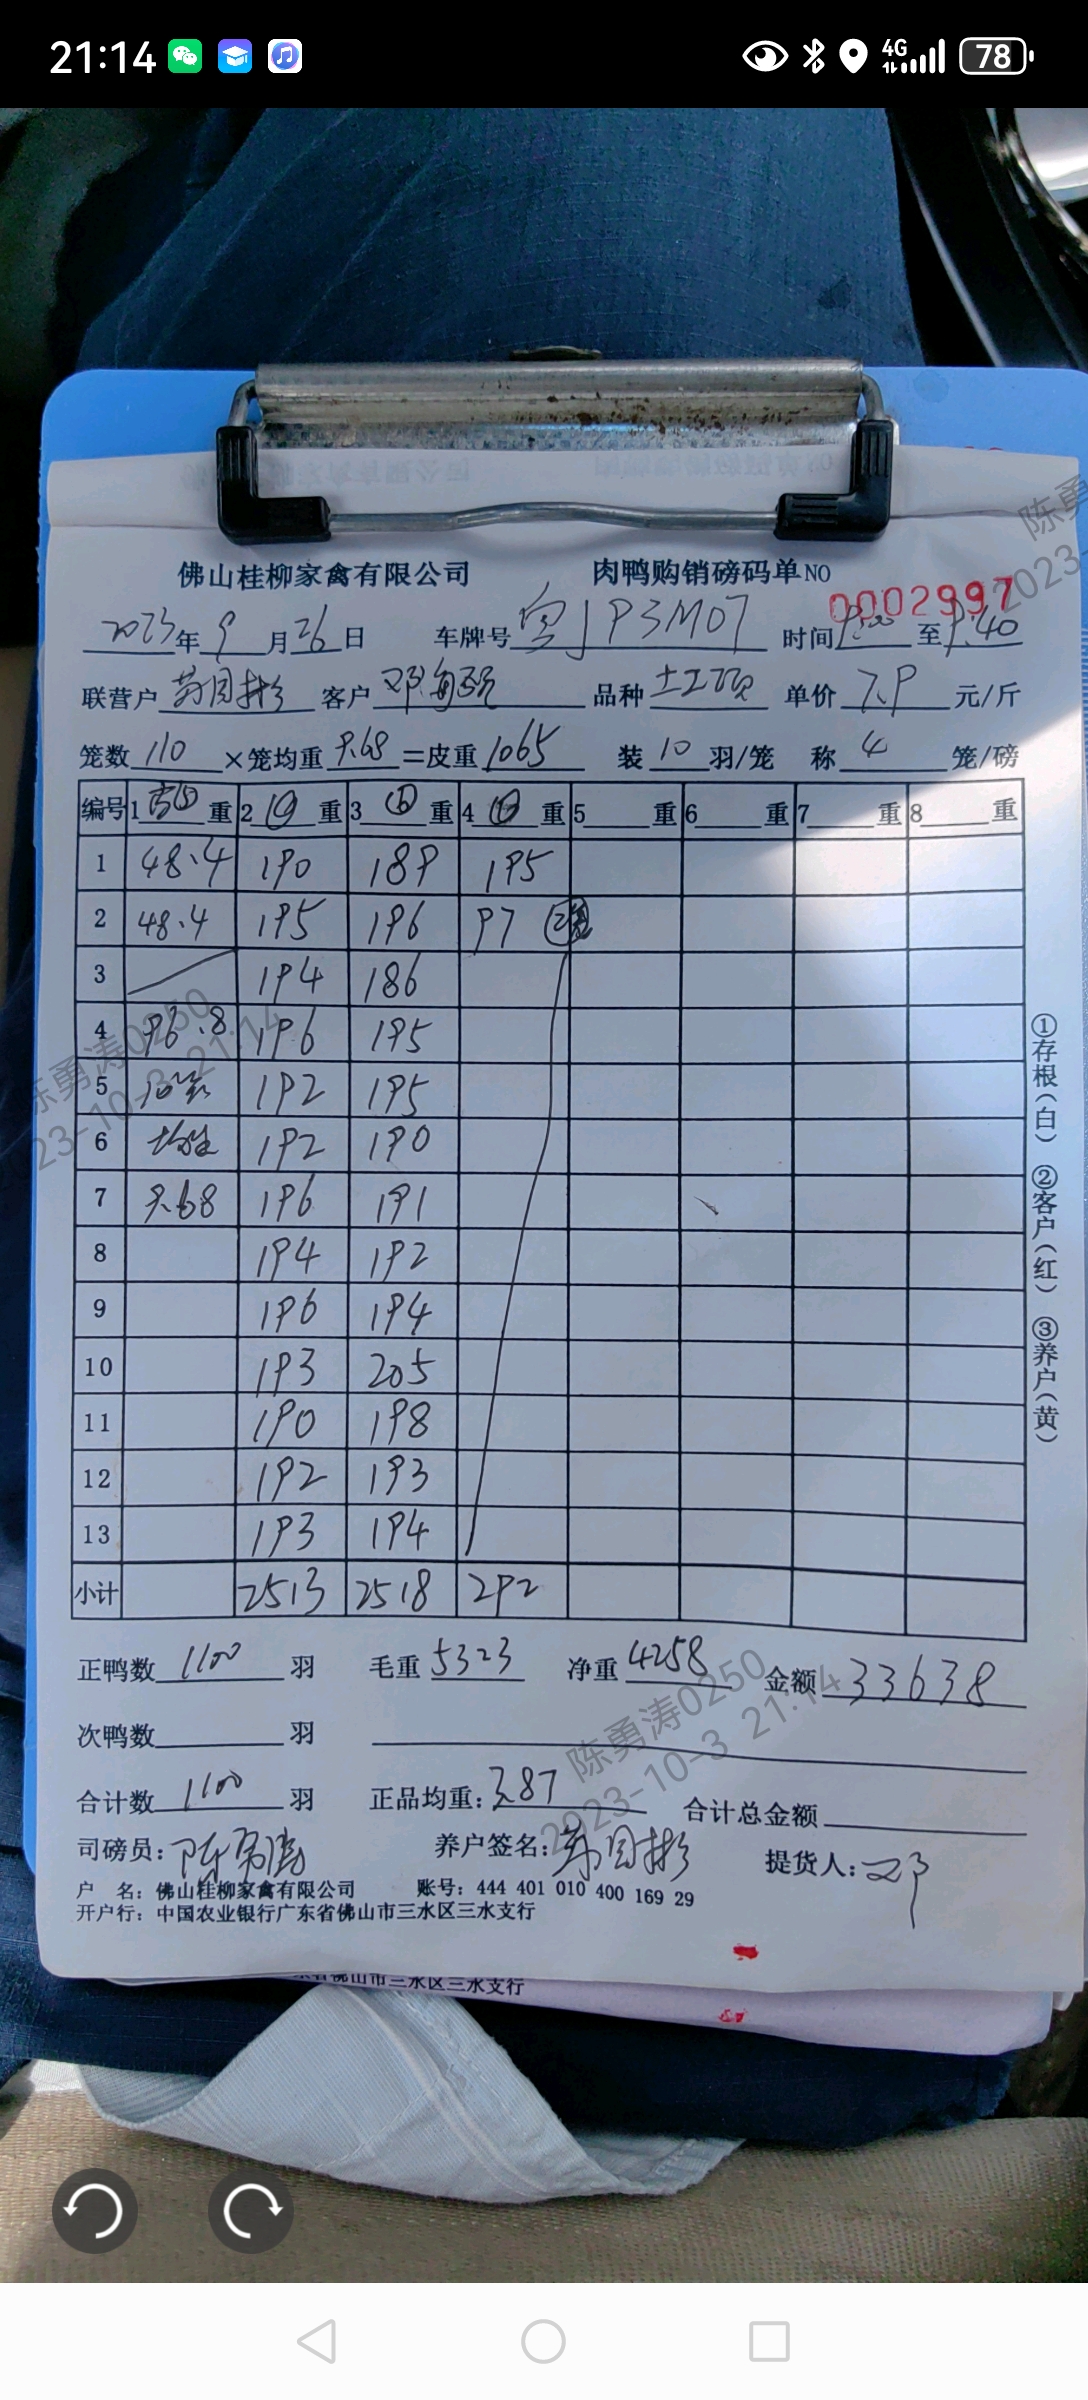 21:14 4G 78
佛山桂柳家禽有限公司 肉鸭购销磅码单NO 0002997
2023年9月26日 车牌号粤JP3M07 时间9:00至9:40
联营户 客户邓 品种 单价7.9元/斤
笼数110×笼均重9.68=皮重1065 装10羽/笼 称4笼/磅
编号 1 重 2 重 3 重 4 重 5 重 6 重 7 重 8 重
1 48.4 190 189 195
2 48.4 195 196 97
3 194 186
4 96.8 196 195
5 192 195
6 192 190
7 9.68 196 191
8 194 192
9 196 194
10 193 205
11 190 198
12 192 193
13 193 194
小计 2513 2518 292
正鸭数1100羽 毛重5323 净重4258 金额33638
次鸭数 羽
合计数1100羽 正品均重:3.87 合计总金额
司磅员:陈勇涛 养户签名: 提货人:邓
户 名:佛山桂柳家禽有限公司 账号:444 401 010 400 169 29
开户行:中国农业银行广东省佛山市三水区三水支行
①存根(白) ②客户(红) ③养户(黄)
省佛山市三水区三水支行
陈勇
2023
陈勇涛0250
23-10-3 21:14
陈勇涛0250
2023-10-3 21:14